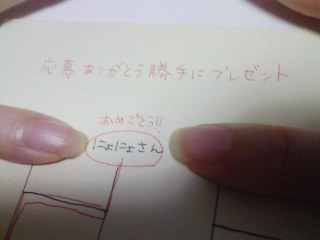 応募ありがとう勝手にプレゼント
おめでとう!!
にょにょさん